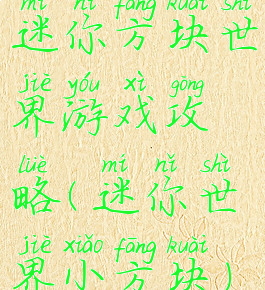 mí nǐ fāng kuài shì
迷你方块世
jiè yóu xì gōng
界游戏攻
lüè mí nǐ shì
略(迷你世
jiè xiǎo fāng kuài
界小方块)